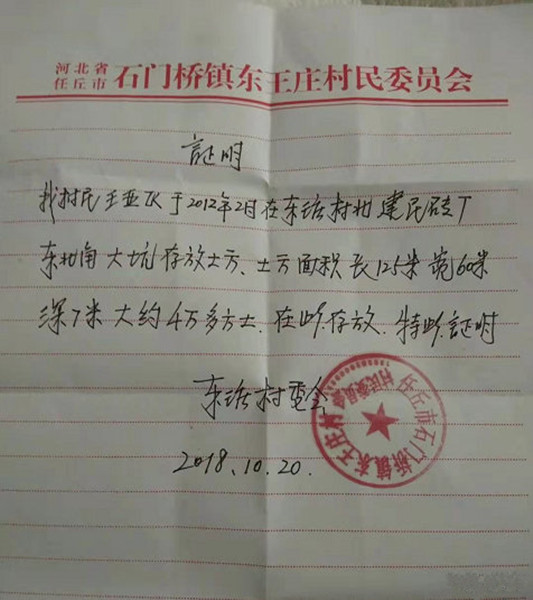 河北省
任丘市 石门桥镇东王庄村民委员会
証明
我村民王亚 于2012年2月在东王庄村北建民砖厂
东北角大坑存放土方、土方面积长125米宽60米
深7米大约4万多方土、在此存放、特此証明
东王庄村委会
2018.10.20.
任丘市石门桥镇东王庄村
村民委员会